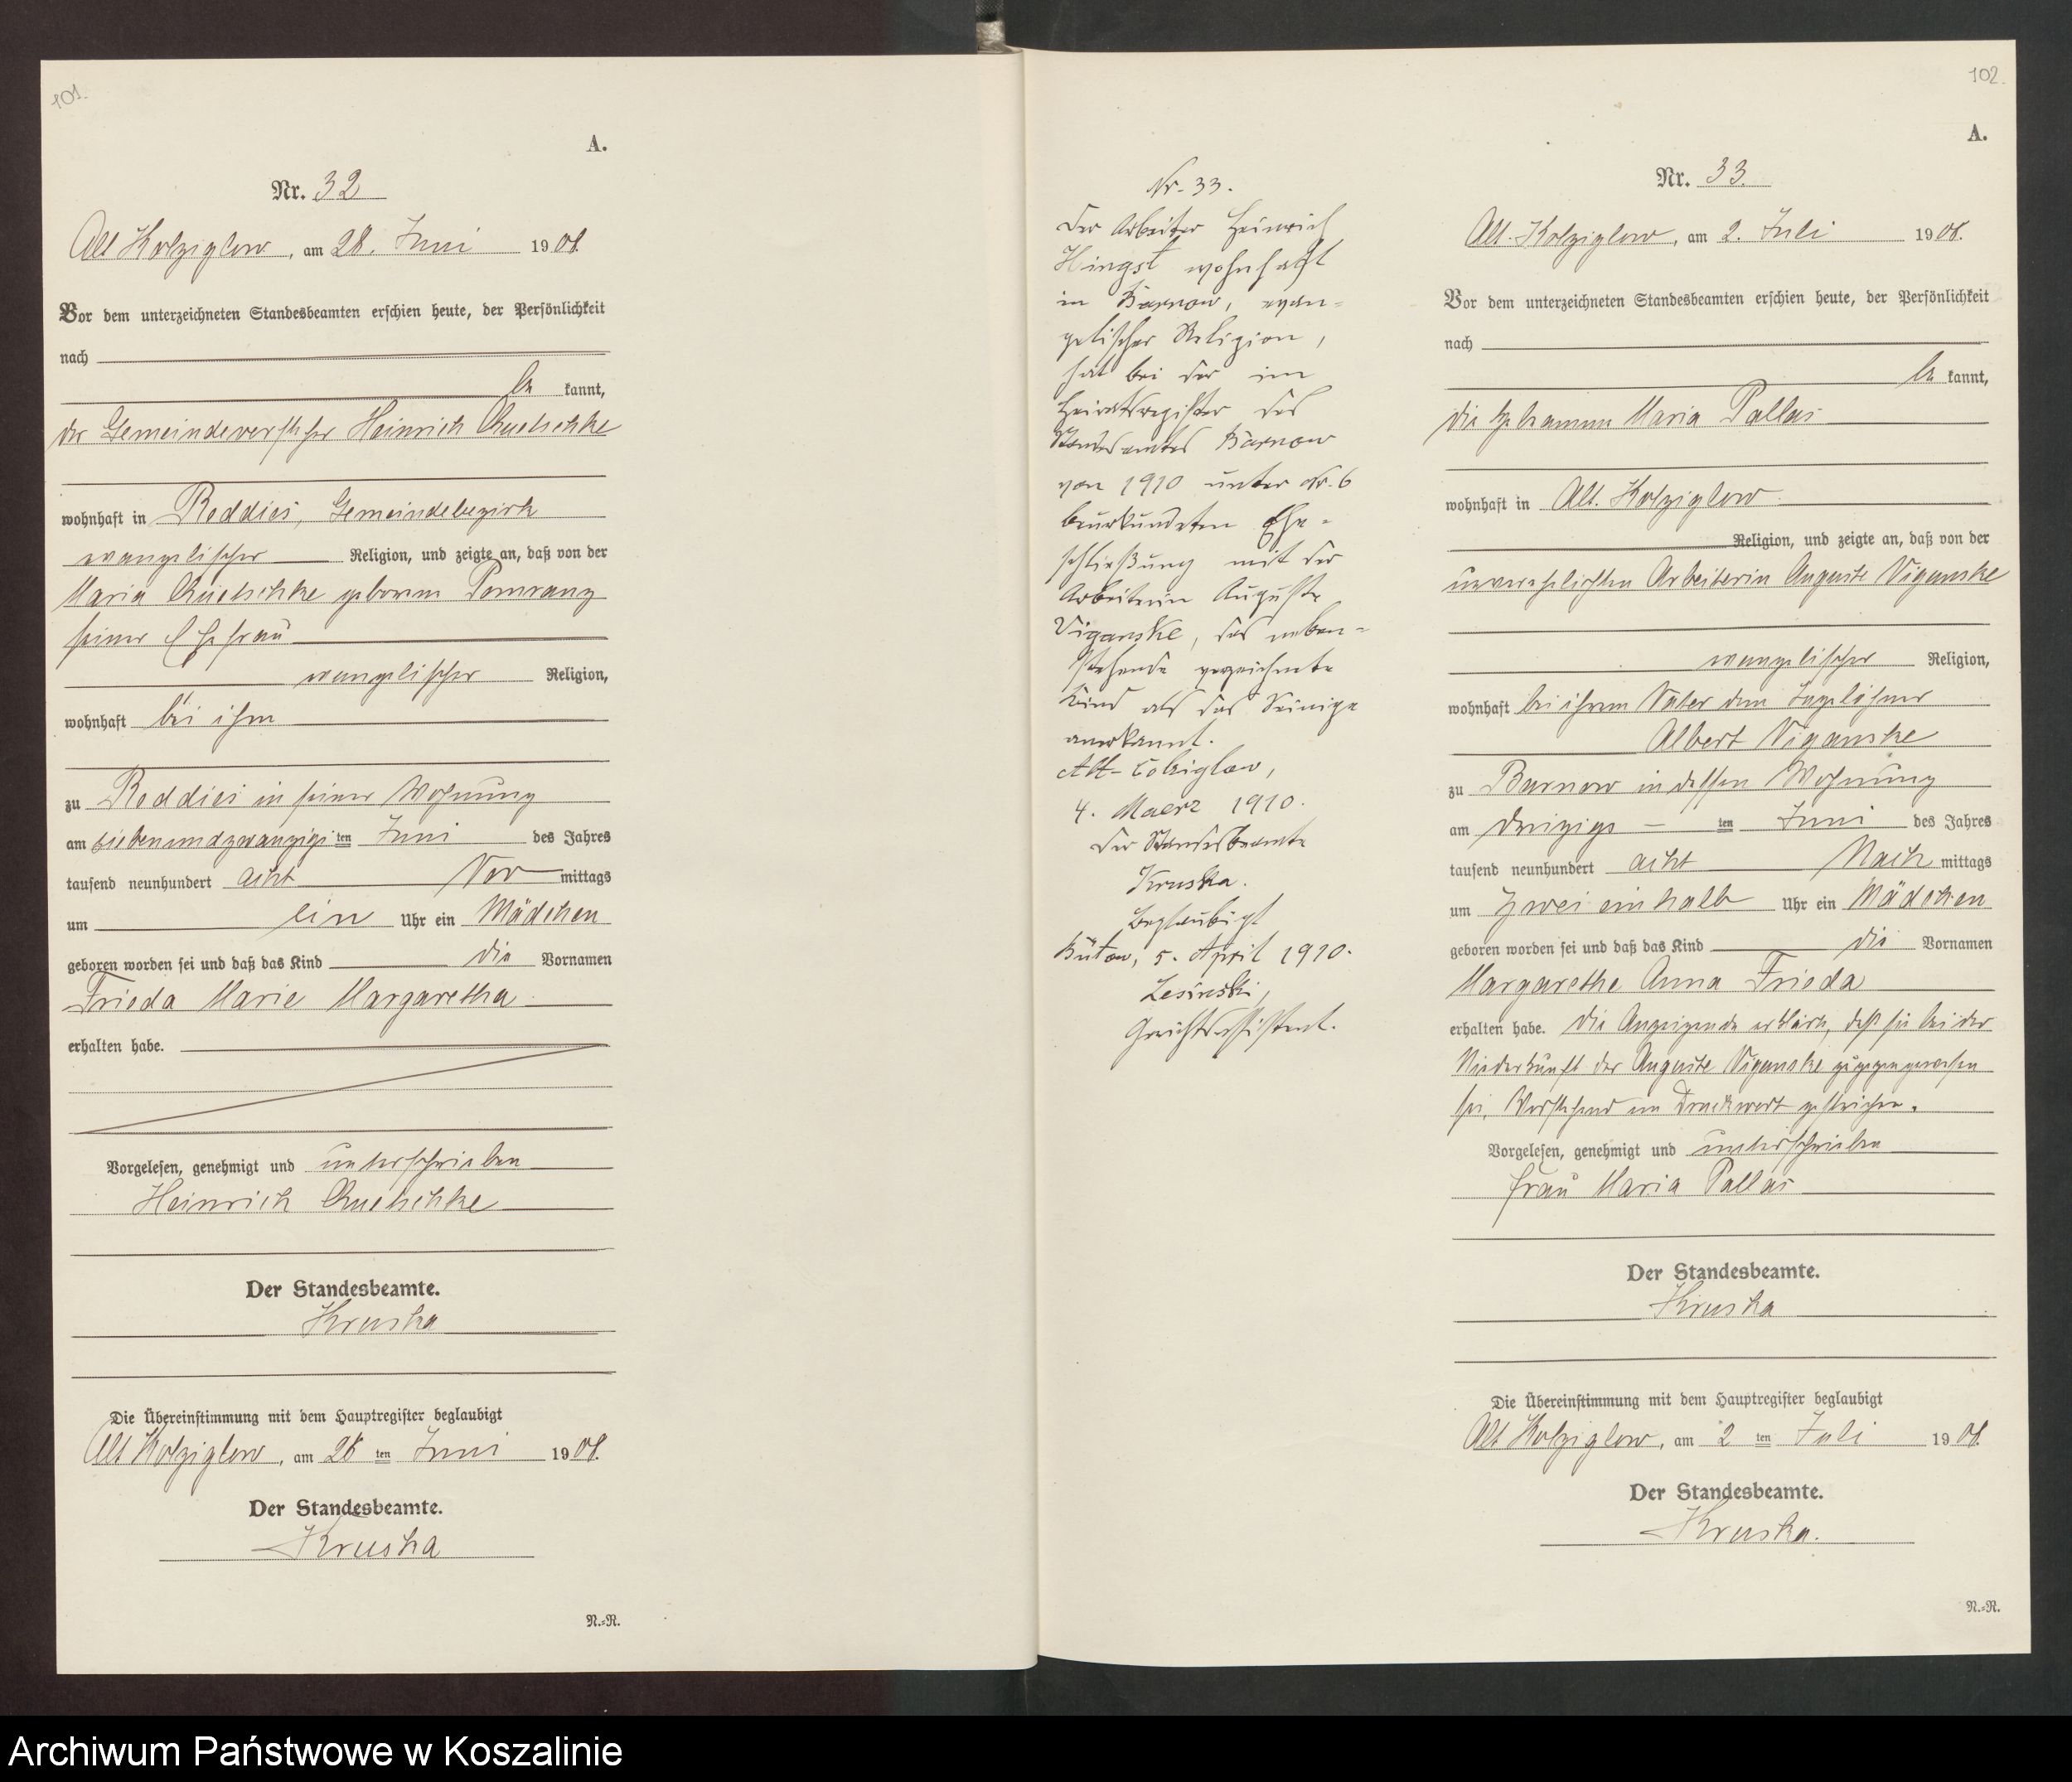 101.
A.
Nr. 32
Alt Kolziglow, am 28. Juni 1908.
Vor dem unterzeichneten Standesbeamten erschien heute, der Persönlichkeit
nach
be kannt,
der Gemeindevorsteher Heinrich Quetschke
wohnhaft in Reddies, Gemeindebezirk
evangelischer Religion, und zeigte an, daß von der
Maria Quetschke geborenen Pomranz
seiner Ehefrau
evangelischer Religion,
wohnhaft bei ihm
zu Reddies in seiner Wohnung
am siebenundzwanzigs ten Juni des Jahres
tausend neunhundert acht Vor mittags
um ein Uhr ein Mädchen
geboren worden sei und daß das Kind die Vornamen
Frieda Marie Margaretha
erhalten habe.
Vorgelesen, genehmigt und unterschrieben
Heinrich Quetschke
Der Standesbeamte.
Kruska
Die Übereinstimmung mit dem Hauptregister beglaubigt
Alt Kolziglow, am 28 ten Juni 1908.
Der Standesbeamte.
Kruska
N.=N.
Nr. 33.
Der Arbeiter Heinrich
Hingst wohnhaft
in Barnow, evan-
gelischer Religion,
hat bei der im
Heiratsregister des
Standesamtes Barnow
von 1910 unter Nr. 6
beurkundeten Ehe-
schließung mit der
Arbeiterin Auguste
Viganske, das neben-
stehende verzeichnete
Kind als das Seinige
anerkannt.
Alt-Kolziglow,
4. Maerz 1910.
Der Standesbeamte
Kruska.
Beglaubigt
Bütow, 5. April 1910.
Lesinski,
Gerichtsassistent.
102.
A.
Nr. 33.
Alt-Kolziglow, am 2. Juli 1908.
Vor dem unterzeichneten Standesbeamten erschien heute, der Persönlichkeit
nach
be kannt,
die Hebamme Maria Pallas
wohnhaft in Alt-Kolziglow
Religion, und zeigte an, daß von der
unverehelichten Arbeiterin Auguste Viganske
evangelischer Religion,
wohnhaft bei ihrem Vater dem Tagelöhner
Albert Viganske
zu Barnow in dessen Wohnung
am dreizigs - ten Juni des Jahres
tausend neunhundert acht Nach mittags
um zwei einhalb Uhr ein Mädchen
geboren worden sei und daß das Kind die Vornamen
Margarethe Anna Frieda
erhalten habe. Die Anzeigende erklärte, daß sie bei der
Niederkunft der Auguste Viganske zugegen gewesen
sei. Vorstehend ein Druckwort gestrichen.
Vorgelesen, genehmigt und unterschrieben
Frau Maria Pallas
Der Standesbeamte.
Kruska
Die Übereinstimmung mit dem Hauptregister beglaubigt
Alt Kolziglow, am 2 ten Juli 1908.
Der Standesbeamte.
Kruska.
N.=N.
Archiwum Państwowe w Koszalinie